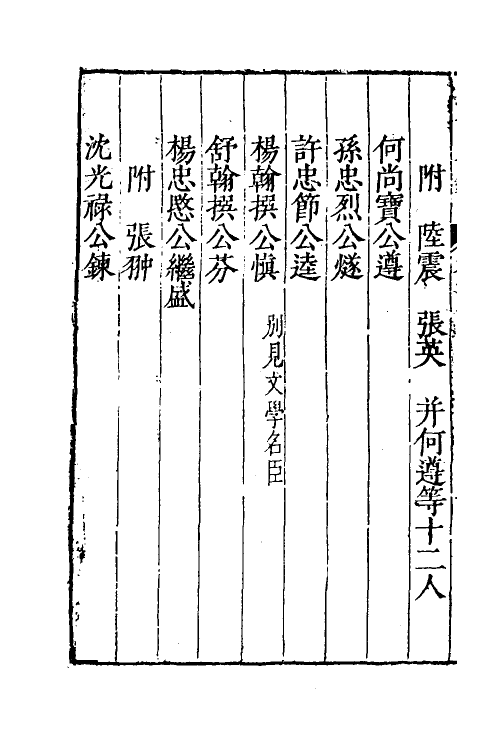 附　陸震　張英　并何遵等十二人
何尚寶公遵
孫忠烈公燧
許忠節公逵
楊翰撰公愼　別見文學名臣
舒翰撰公芬
楊忠愍公繼盛
附　張翀
沈光祿公鍊